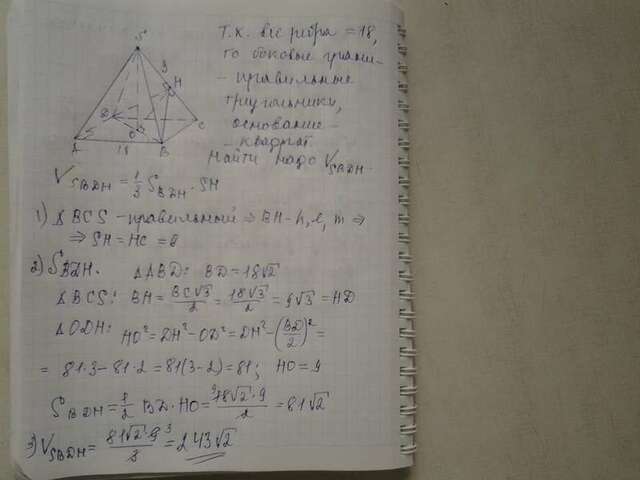 Т.К. все ребра = 18,
то боковые грани -
- правильные
треугольники,
основание -
- квадрат
Найти надо V_SBDH.
S
9
H
D
C
O
A
18
B
V_SBDH = 1/3 S_BDH · SH
1) Δ BCS - правильный ⇒ BH - h, l, m ⇒
⇒ SH = HC = 9
2) S_BDH. ΔABD: BD = 18√2
ΔBCS: BH = BC√3/2 = 18√3/2 = 9√3 = HD
ΔODH: HO² = DH² - OD² = DH² - (BD/2)² =
= 81·3 - 81·2 = 81(3-2) = 81; HO = 9
S_BDH = 1/2 BD · HO = 18√2·9/2 = 81√2
3) V_SBDH = 81√2·9/3 = 243√2